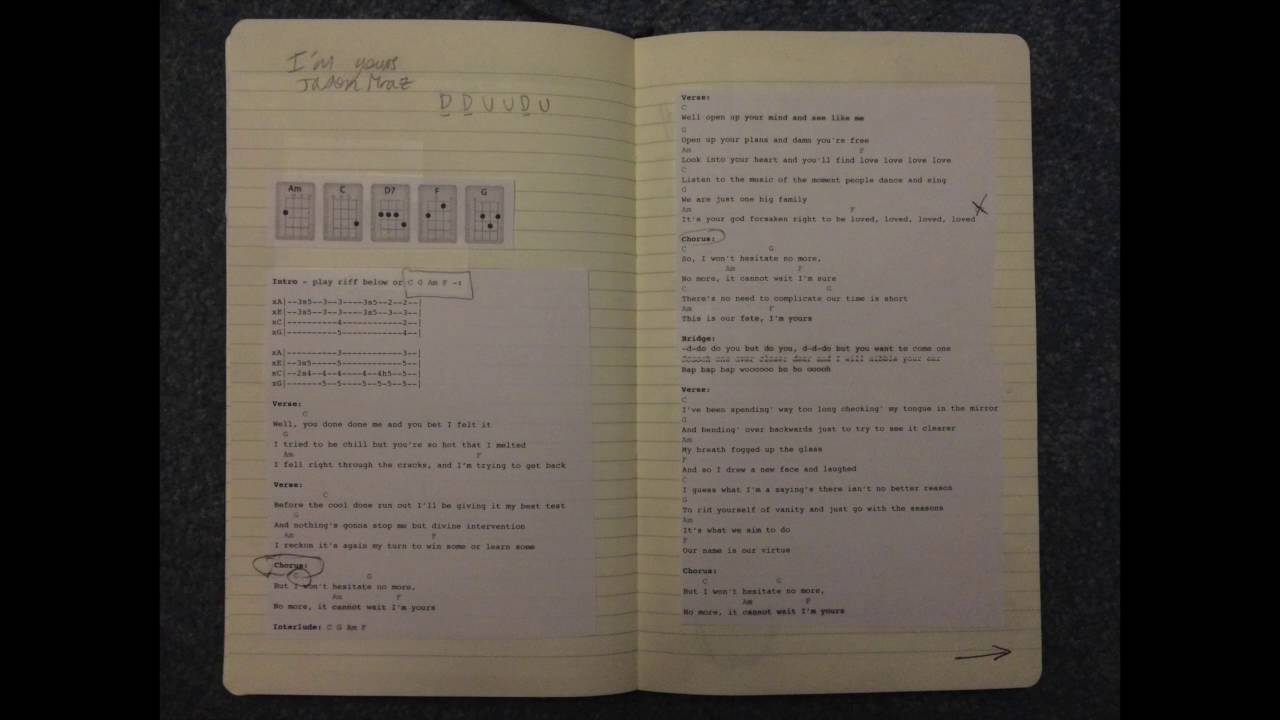 I'm yours
Jason Mraz
D D U U D U
Am C D7 F G
Intro - play riff below or C G Am F -:
xA|--3s5--3--3----3s5--2--2--|
xE|--3s5--3--3----3s5--3--3--|
xC|----------4-----------2--|
xG|----------5-----------4--|
xA|----------3------------3--|
xE|--3s5-----5------------5--|
xC|--2s4--4--4----4--4h5--5--|
xG|-------5--5----5--5-5--5--|
Verse:
C
Well, you done done me and you bet I felt it
G
I tried to be chill but you're so hot that I melted
Am F
I fell right through the cracks, and I'm trying to get back
Verse:
C
Before the cool done run out I'll be giving it my best test
G
And nothing's gonna stop me but divine intervention
Am F
I reckon it's again my turn to win some or learn some
Chorus:
C G
But I won't hesitate no more,
Am F
No more, it cannot wait I'm yours
Interlude: C G Am F
Verse:
C
Well open up your mind and see like me
G
Open up your plans and damn you're free
Am F
Look into your heart and you'll find love love love love
C
Listen to the music of the moment people dance and sing
G
We are just one big family
Am F
It's your god forsaken right to be loved, loved, loved, loved
Chorus:
C G
So, I won't hesitate no more,
Am F
No more, it cannot wait I'm sure
C G
There's no need to complicate our time is short
Am F
This is our fate, I'm yours
Bridge:
-d-do do you but do you, d-d-do but you want to come one
one over closer dear and I will nibble your ear
Bap bap bap woooooo ho ho ooooh
Verse:
C
I've been spending' way too long checking' my tongue in the mirror
G
And bending' over backwards just to try to see it clearer
Am
My breath fogged up the glass
F
And so I drew a new face and laughed
C
I guess what I'm a saying's there isn't no better reason
G
To rid yourself of vanity and just go with the seasons
Am
It's what we aim to do
F
Our name is our virtue
Chorus:
C G
But I won't hesitate no more,
Am F
No more, it cannot wait I'm yours